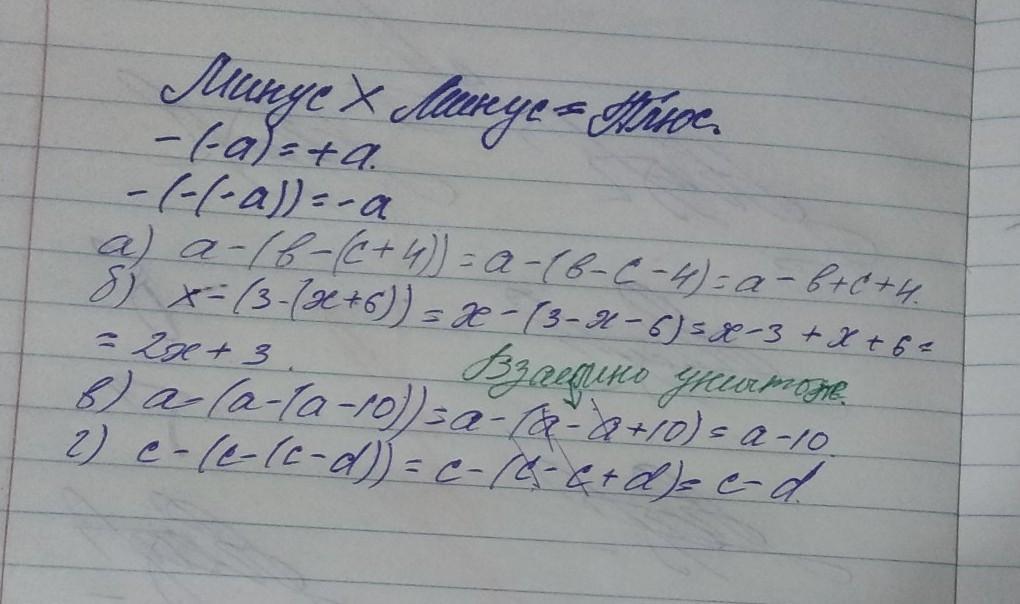 Минус × Минус = Плюс.
-(-а)=+а.
-(-(-а))=-а
а) а-(в-(с+4))=а-(в-с-4)=а-в+с+4.
б) х-(3-(х+6))=х-(3-х-6)=х-3+х+6=
=2х+3.
Взаимно уничтож.
в) а-(а-(а-10))=а-(а-а+10)=а-10.
г) с-(с-(с-d))=с-(с-с+d)=с-d.